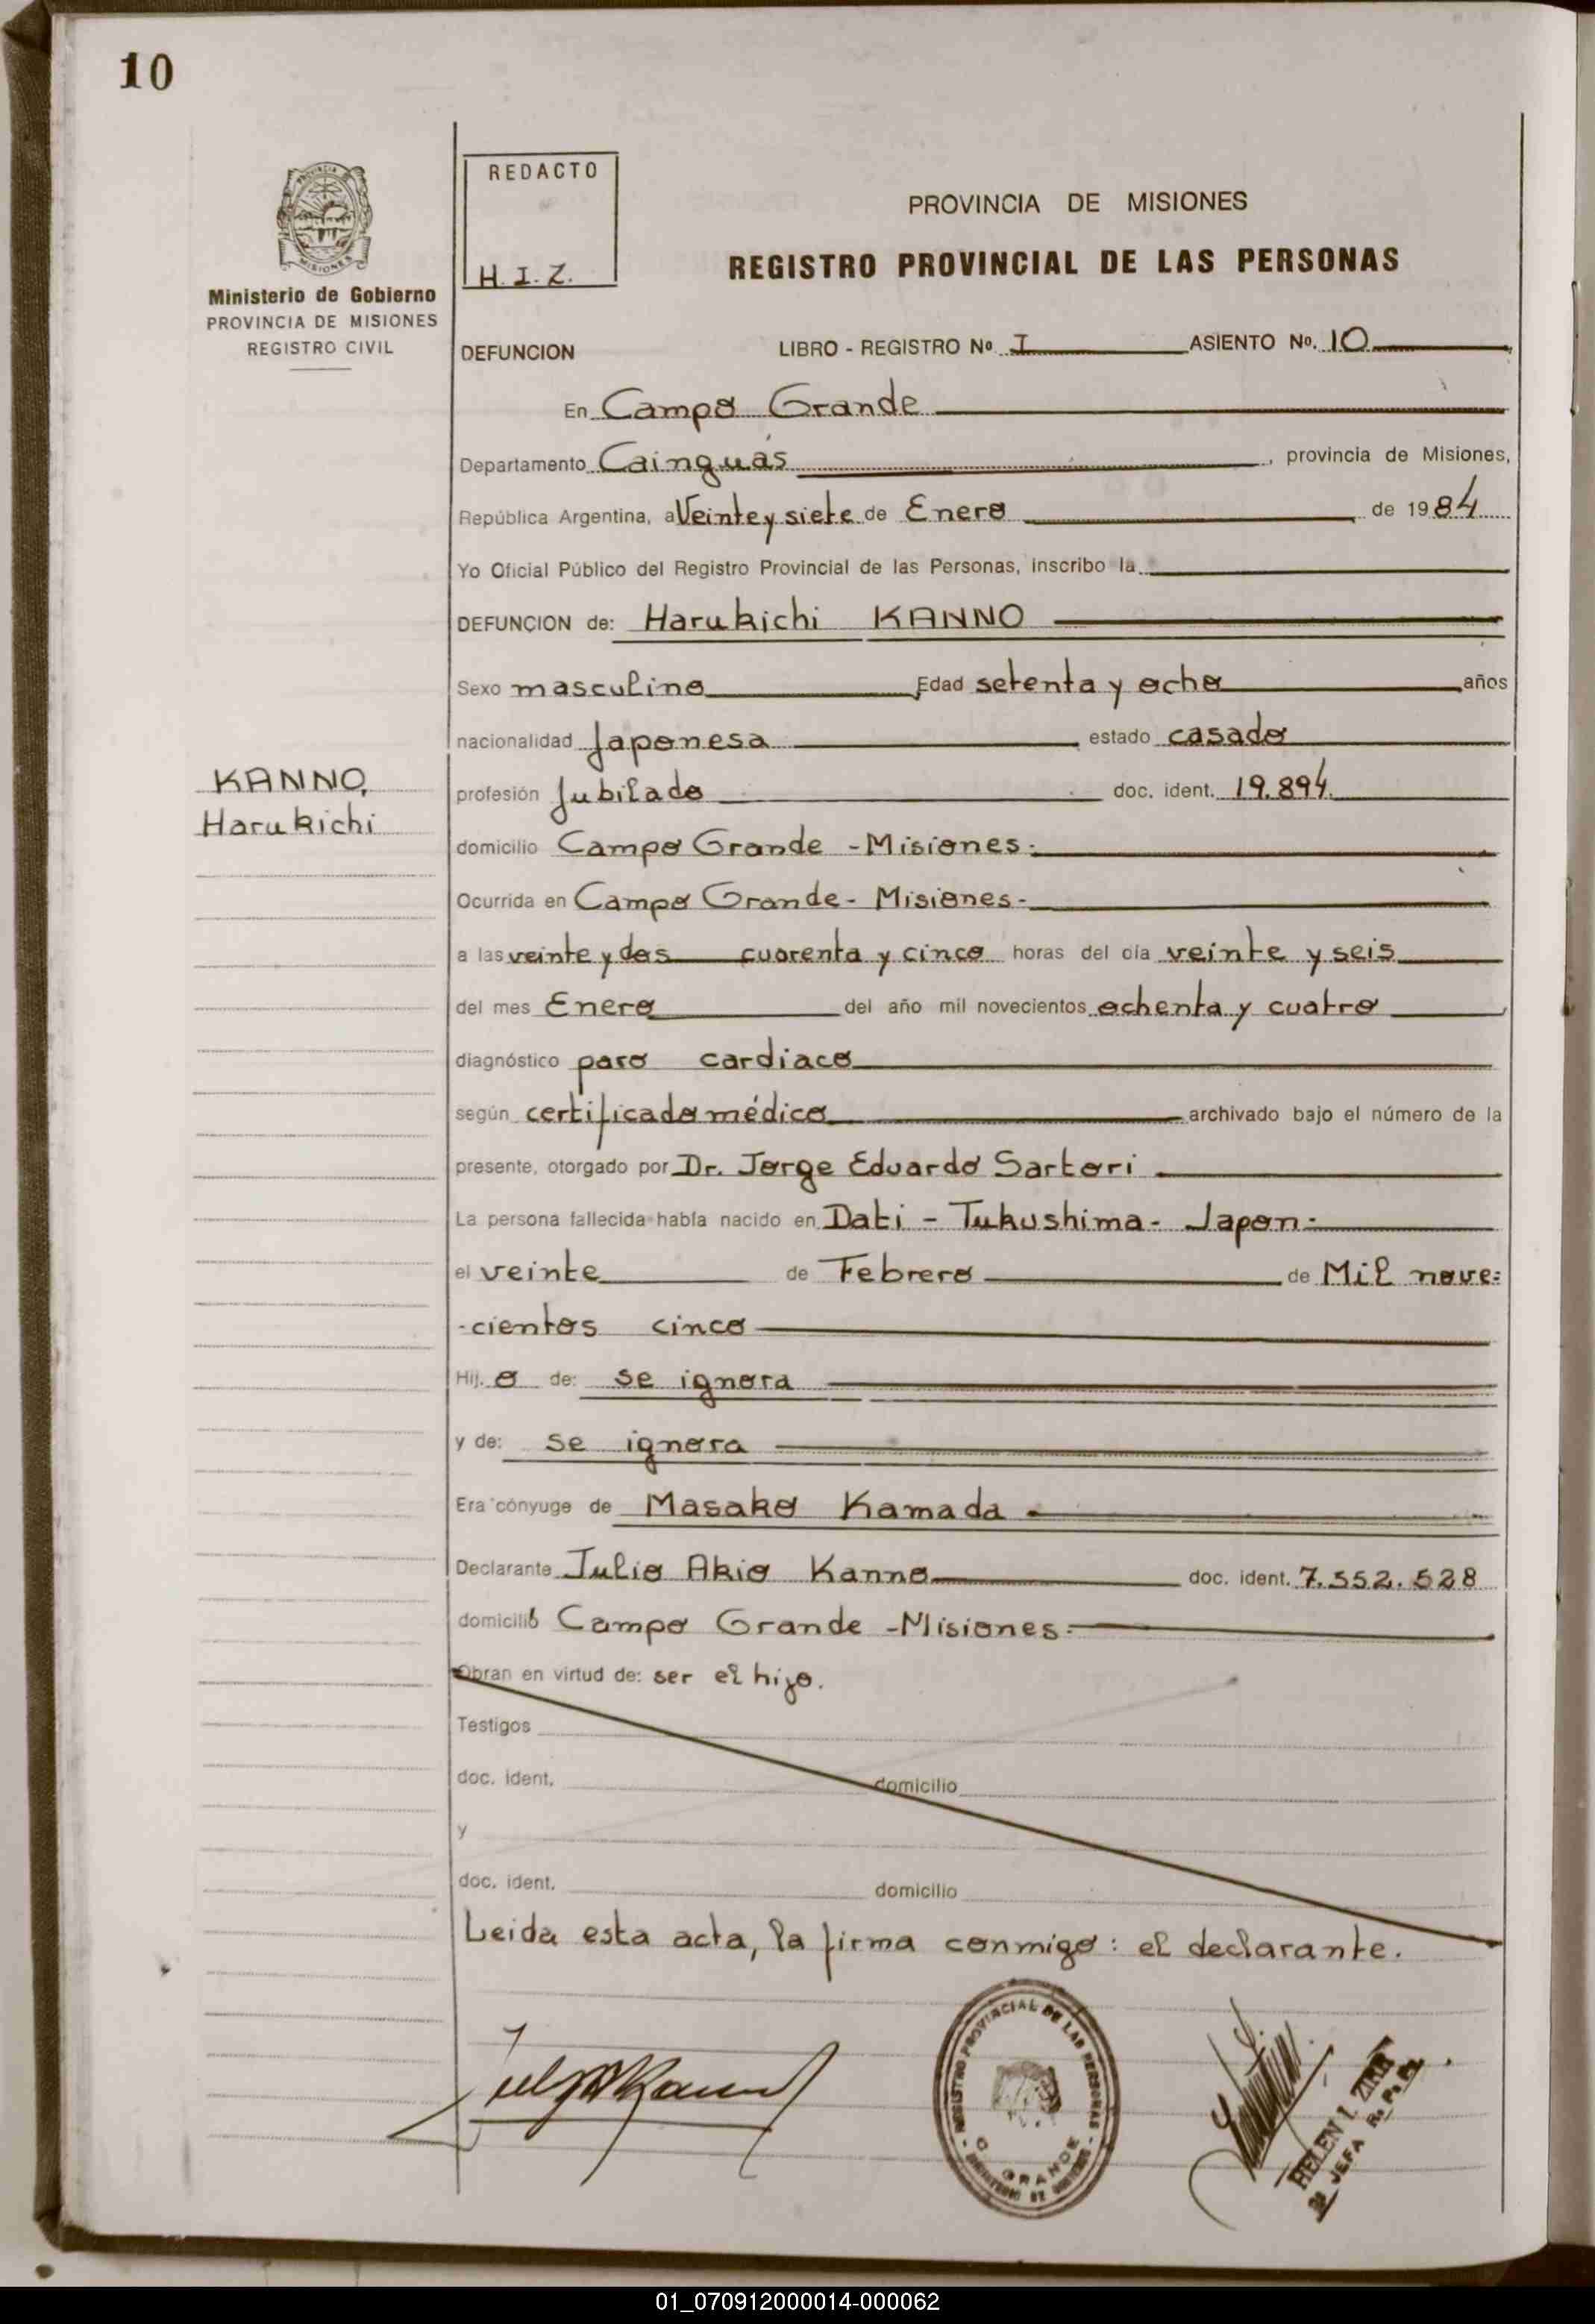 10
PROVINCIA DE
MISIONES
Ministerio de Gobierno
PROVINCIA DE MISIONES
REGISTRO CIVIL
REDACTO
H.I.Z.
PROVINCIA DE MISIONES
REGISTRO PROVINCIAL DE LAS PERSONAS
DEFUNCION LIBRO - REGISTRO Nº I ASIENTO Nº. 10
En Campo Grande
Departamento Cainguás, provincia de Misiones,
República Argentina, a Veinte y siete de Enero de 1984
Yo Oficial Público del Registro Provincial de las Personas, inscribo la
DEFUNCION de: Harukichi KANNO
Sexo masculino Edad setenta y ocho años
nacionalidad Japonesa estado casado
KANNO,
Harukichi
profesión Jubilado doc. ident. 19.894.
domicilio Campo Grande - Misiones.
Ocurrida en Campo Grande - Misiones -
a las veinte y dos cuarenta y cinco horas del día veinte y seis
del mes Enero del año mil novecientos ochenta y cuatro
diagnóstico paro cardiaco
según certificado médico archivado bajo el número de la
presente, otorgado por Dr. Jorge Eduardo Sartori
La persona fallecida había nacido en Dati - Tukushima - Japon -
el veinte de Febrero de Mil nove=
-cientos cinco
Hij.o de: se ignora
y de: se ignora
Era cónyuge de Masako Kamada
Declarante Julio Akio Kanno doc. ident. 7.552.528
domicilió Campo Grande - Misiones.
Obran en virtud de: ser el hijo.
Testigos
doc. ident. domicilio
y
doc. ident. domicilio
Leida esta acta, la firma conmigo: el declarante.
REGISTRO PROVINCIAL DE LAS PERSONAS
C. GRANDE
HELEN I. ZIRR
JEFA R. P. P.
01_070912000014-000062